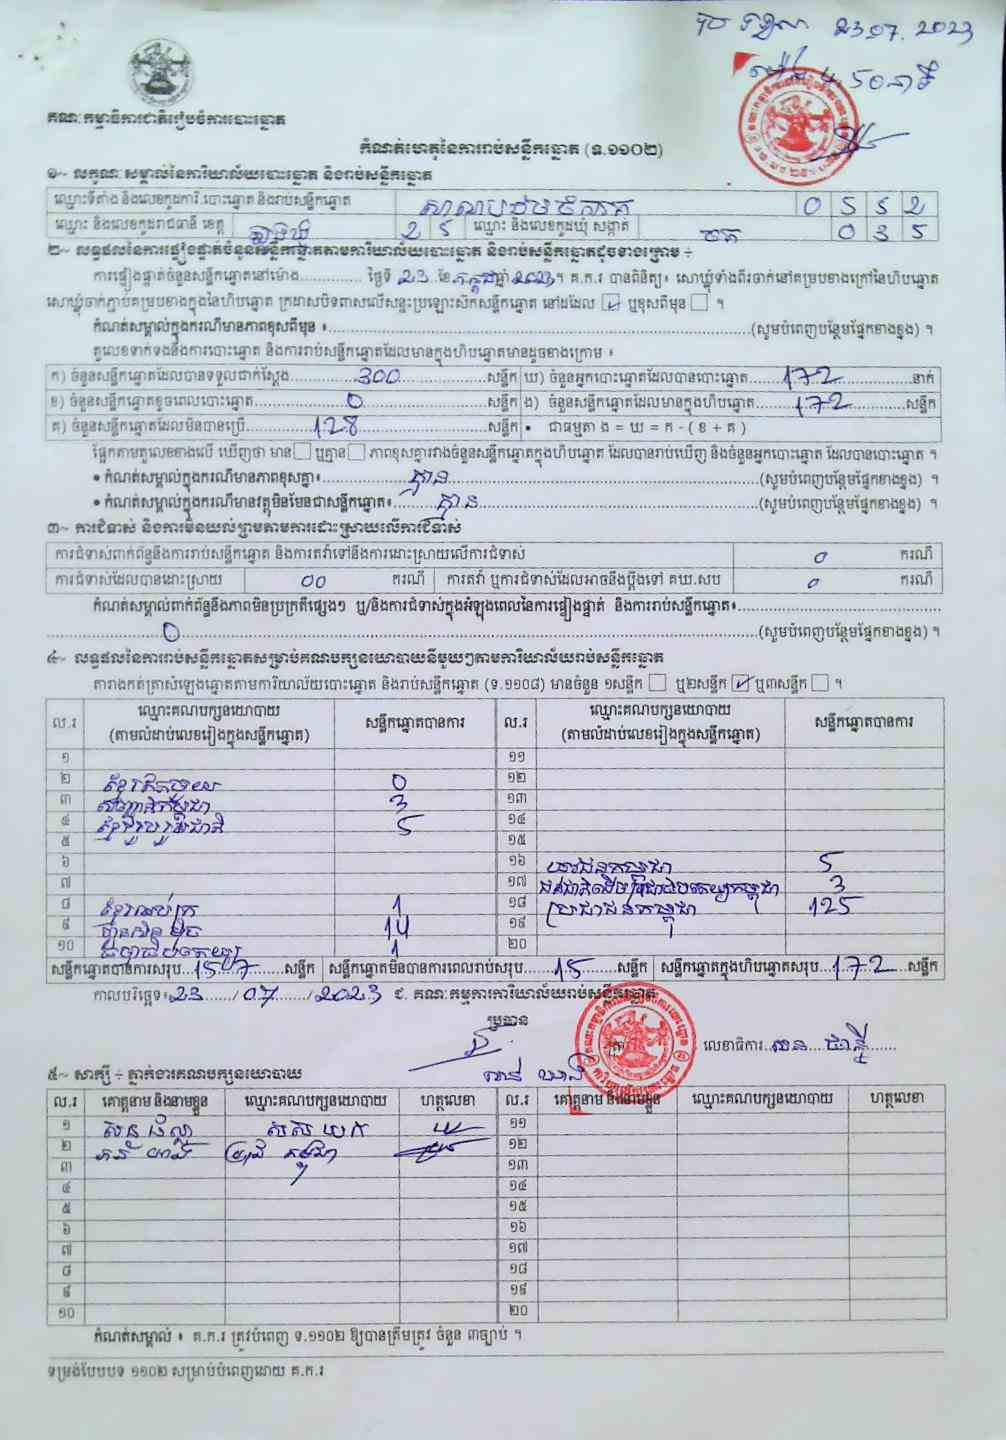 23.07.2023
50 នាទី
គណៈកម្មាធិការជាតិរៀបចំការបោះឆ្នោត
កំណត់ហេតុនៃការរាប់សន្លឹកឆ្នោត (ទ.១១០២)
១~ លក្ខណៈសម្គាល់នៃការិយាល័យបោះឆ្នោត និងរាប់សន្លឹកឆ្នោត
ឈ្មោះទីតាំង និងលេខកូដការិ.បោះឆ្នោត និងរាប់សន្លឹកឆ្នោត 0 5 5 2
ឈ្មោះ និងលេខកូដរាជធានី ខេត្ត 2 5 ឈ្មោះ និងលេខកូដឃុំ សង្កាត់ 0 3 5
២~ លទ្ធផលនៃការផ្ទៀងផ្ទាត់ចំនួនសន្លឹកឆ្នោតតាមការិយាល័យបោះឆ្នោត និងរាប់សន្លឹកឆ្នោតដូចខាងក្រោម ÷
ការផ្ទៀងផ្ទាត់ចំនួនសន្លឹកឆ្នោតនៅម៉ោង............ ថ្ងៃទី 23 ខែ កក្កដា ឆ្នាំ 2023 ។ គ.ក.រ បានពិនិត្យ៖ សោឃ្លុំទាំងពីរចាក់នៅគម្របខាងក្រៅនៃហិបឆ្នោត
សោឃ្លុំចាក់ភ្ជាប់គម្របខាងក្នុងនៃហិបឆ្នោត ក្រដាសបិទពាសលើសន្ទះប្រឡោះសិកសន្លឹកឆ្នោត នៅដដែល ☑ ឬខុសពីមុន ☐ ។
កំណត់សម្គាល់ក្នុងករណីមានភាពខុសពីមុន ៖............(សូមបំពេញបន្ថែមផ្នែកខាងខ្នង) ។
តួលេខទាក់ទងនឹងការបោះឆ្នោត និងការរាប់សន្លឹកឆ្នោតដែលមានក្នុងហិបឆ្នោតមានដូចខាងក្រោម ៖
ក) ចំនួនសន្លឹកឆ្នោតដែលបានទទួលជាក់ស្តែង......300......សន្លឹក ឃ) ចំនួនអ្នកបោះឆ្នោតដែលបានបោះឆ្នោត......172......នាក់
ខ) ចំនួនសន្លឹកឆ្នោតខូចពេលបោះឆ្នោត......0......សន្លឹក ង) ចំនួនសន្លឹកឆ្នោតដែលមានក្នុងហិបឆ្នោត......172......សន្លឹក
គ) ចំនួនសន្លឹកឆ្នោតដែលមិនបានប្រើ......128......សន្លឹក • ជាធម្មតា ង = ឃ = ក - ( ខ + គ )
ផ្អែកតាមតួលេខខាងលើ ឃើញថា មាន ☐ ឬគ្មាន ☐ ភាពខុសគ្នារវាងចំនួនសន្លឹកឆ្នោតក្នុងហិបឆ្នោត ដែលបានរាប់ឃើញ និងចំនួនអ្នកបោះឆ្នោត ដែលបានបោះឆ្នោត ។
• កំណត់សម្គាល់ក្នុងករណីមានភាពខុសគ្នា៖......គ្មាន......(សូមបំពេញបន្ថែមផ្នែកខាងខ្នង) ។
• កំណត់សម្គាល់ក្នុងករណីមានវត្ថុមិនមែនជាសន្លឹកឆ្នោត៖......គ្មាន......(សូមបំពេញបន្ថែមផ្នែកខាងខ្នង) ។
៣~ ការជំទាស់ និងការមិនយល់ព្រមតាមការដោះស្រាយលើការជំទាស់
ការជំទាស់ពាក់ព័ន្ធនឹងការរាប់សន្លឹកឆ្នោត និងការតវ៉ាទៅនឹងការដោះស្រាយលើការជំទាស់ 0 ករណី
ការជំទាស់ដែលបានដោះស្រាយ 00 ករណី ការតវ៉ា ឬការជំទាស់ដែលអាចនឹងប្តឹងទៅ គឃ.សប 0 ករណី
កំណត់សម្គាល់ពាក់ព័ន្ធនឹងភាពមិនប្រក្រតីផ្សេងៗ ឬ/និងការជំទាស់ក្នុងអំឡុងពេលនៃការផ្ទៀងផ្ទាត់ និងការរាប់សន្លឹកឆ្នោត៖............
......0......(សូមបំពេញបន្ថែមផ្នែកខាងខ្នង) ។
៤~ លទ្ធផលនៃការរាប់សន្លឹកឆ្នោតសម្រាប់គណបក្សនយោបាយនីមួយៗតាមការិយាល័យរាប់សន្លឹកឆ្នោត
តារាងកត់ត្រាសំឡេងឆ្នោតតាមការិយាល័យបោះឆ្នោត និងរាប់សន្លឹកឆ្នោត (ទ.១១០៨) មានចំនួន ១សន្លឹក ☐ ឬ២សន្លឹក ☑ ឬ៣សន្លឹក ☐ ។
ល.រ ឈ្មោះគណបក្សនយោបាយ (តាមលំដាប់លេខរៀងក្នុងសន្លឹកឆ្នោត) សន្លឹកឆ្នោតបានការ ល.រ ឈ្មោះគណបក្សនយោបាយ (តាមលំដាប់លេខរៀងក្នុងសន្លឹកឆ្នោត) សន្លឹកឆ្នោតបានការ
១ ១១
២ 0 ១២
៣ 3 ១៣
៤ ខ្មែររួបរួមជាតិ 5 ១៤
៥ ១៥
៦ ១៦ យុវជនកម្ពុជា 5
៧ ១៧ ជនជាតិដើមប្រជាធិបតេយ្យកម្ពុជា 3
៨ 1 ១៨ ប្រជាជនកម្ពុជា 125
៩ ហ្វ៊ុនស៊ិនប៉ិច 14 ១៩
១០ 1 ២០
សន្លឹកឆ្នោតបានការសរុប...157......សន្លឹក សន្លឹកឆ្នោតមិនបានការពេលរាប់សរុប......15......សន្លឹក សន្លឹកឆ្នោតក្នុងហិបឆ្នោតសរុប...172...សន្លឹក
កាលបរិច្ឆេទ៖ 23 / 07 / 2023 ជ. គណៈកម្មការការិយាល័យរាប់សន្លឹកឆ្នោត
ប្រធាន
លេខាធិការ
៥~ សាក្សី ÷ ភ្នាក់ងារគណបក្សនយោបាយ
ល.រ គោត្តនាម និងនាមខ្លួន ឈ្មោះគណបក្សនយោបាយ ហត្ថលេខា ល.រ គោត្តនាម និងនាមខ្លួន ឈ្មោះគណបក្សនយោបាយ ហត្ថលេខា
១ ១១
២ ១២
៣ ១៣
៤ ១៤
៥ ១៥
៦ ១៦
៧ ១៧
៨ ១៨
៩ ១៩
១០ ២០
កំណត់សម្គាល់ ៖ គ.ក.រ ត្រូវបំពេញ ទ.១១០២ ឱ្យបានត្រឹមត្រូវ ចំនួន ៣ច្បាប់ ។
ទម្រង់បែបបទ ១១០២ សម្រាប់បំពេញដោយ គ.ក.រ